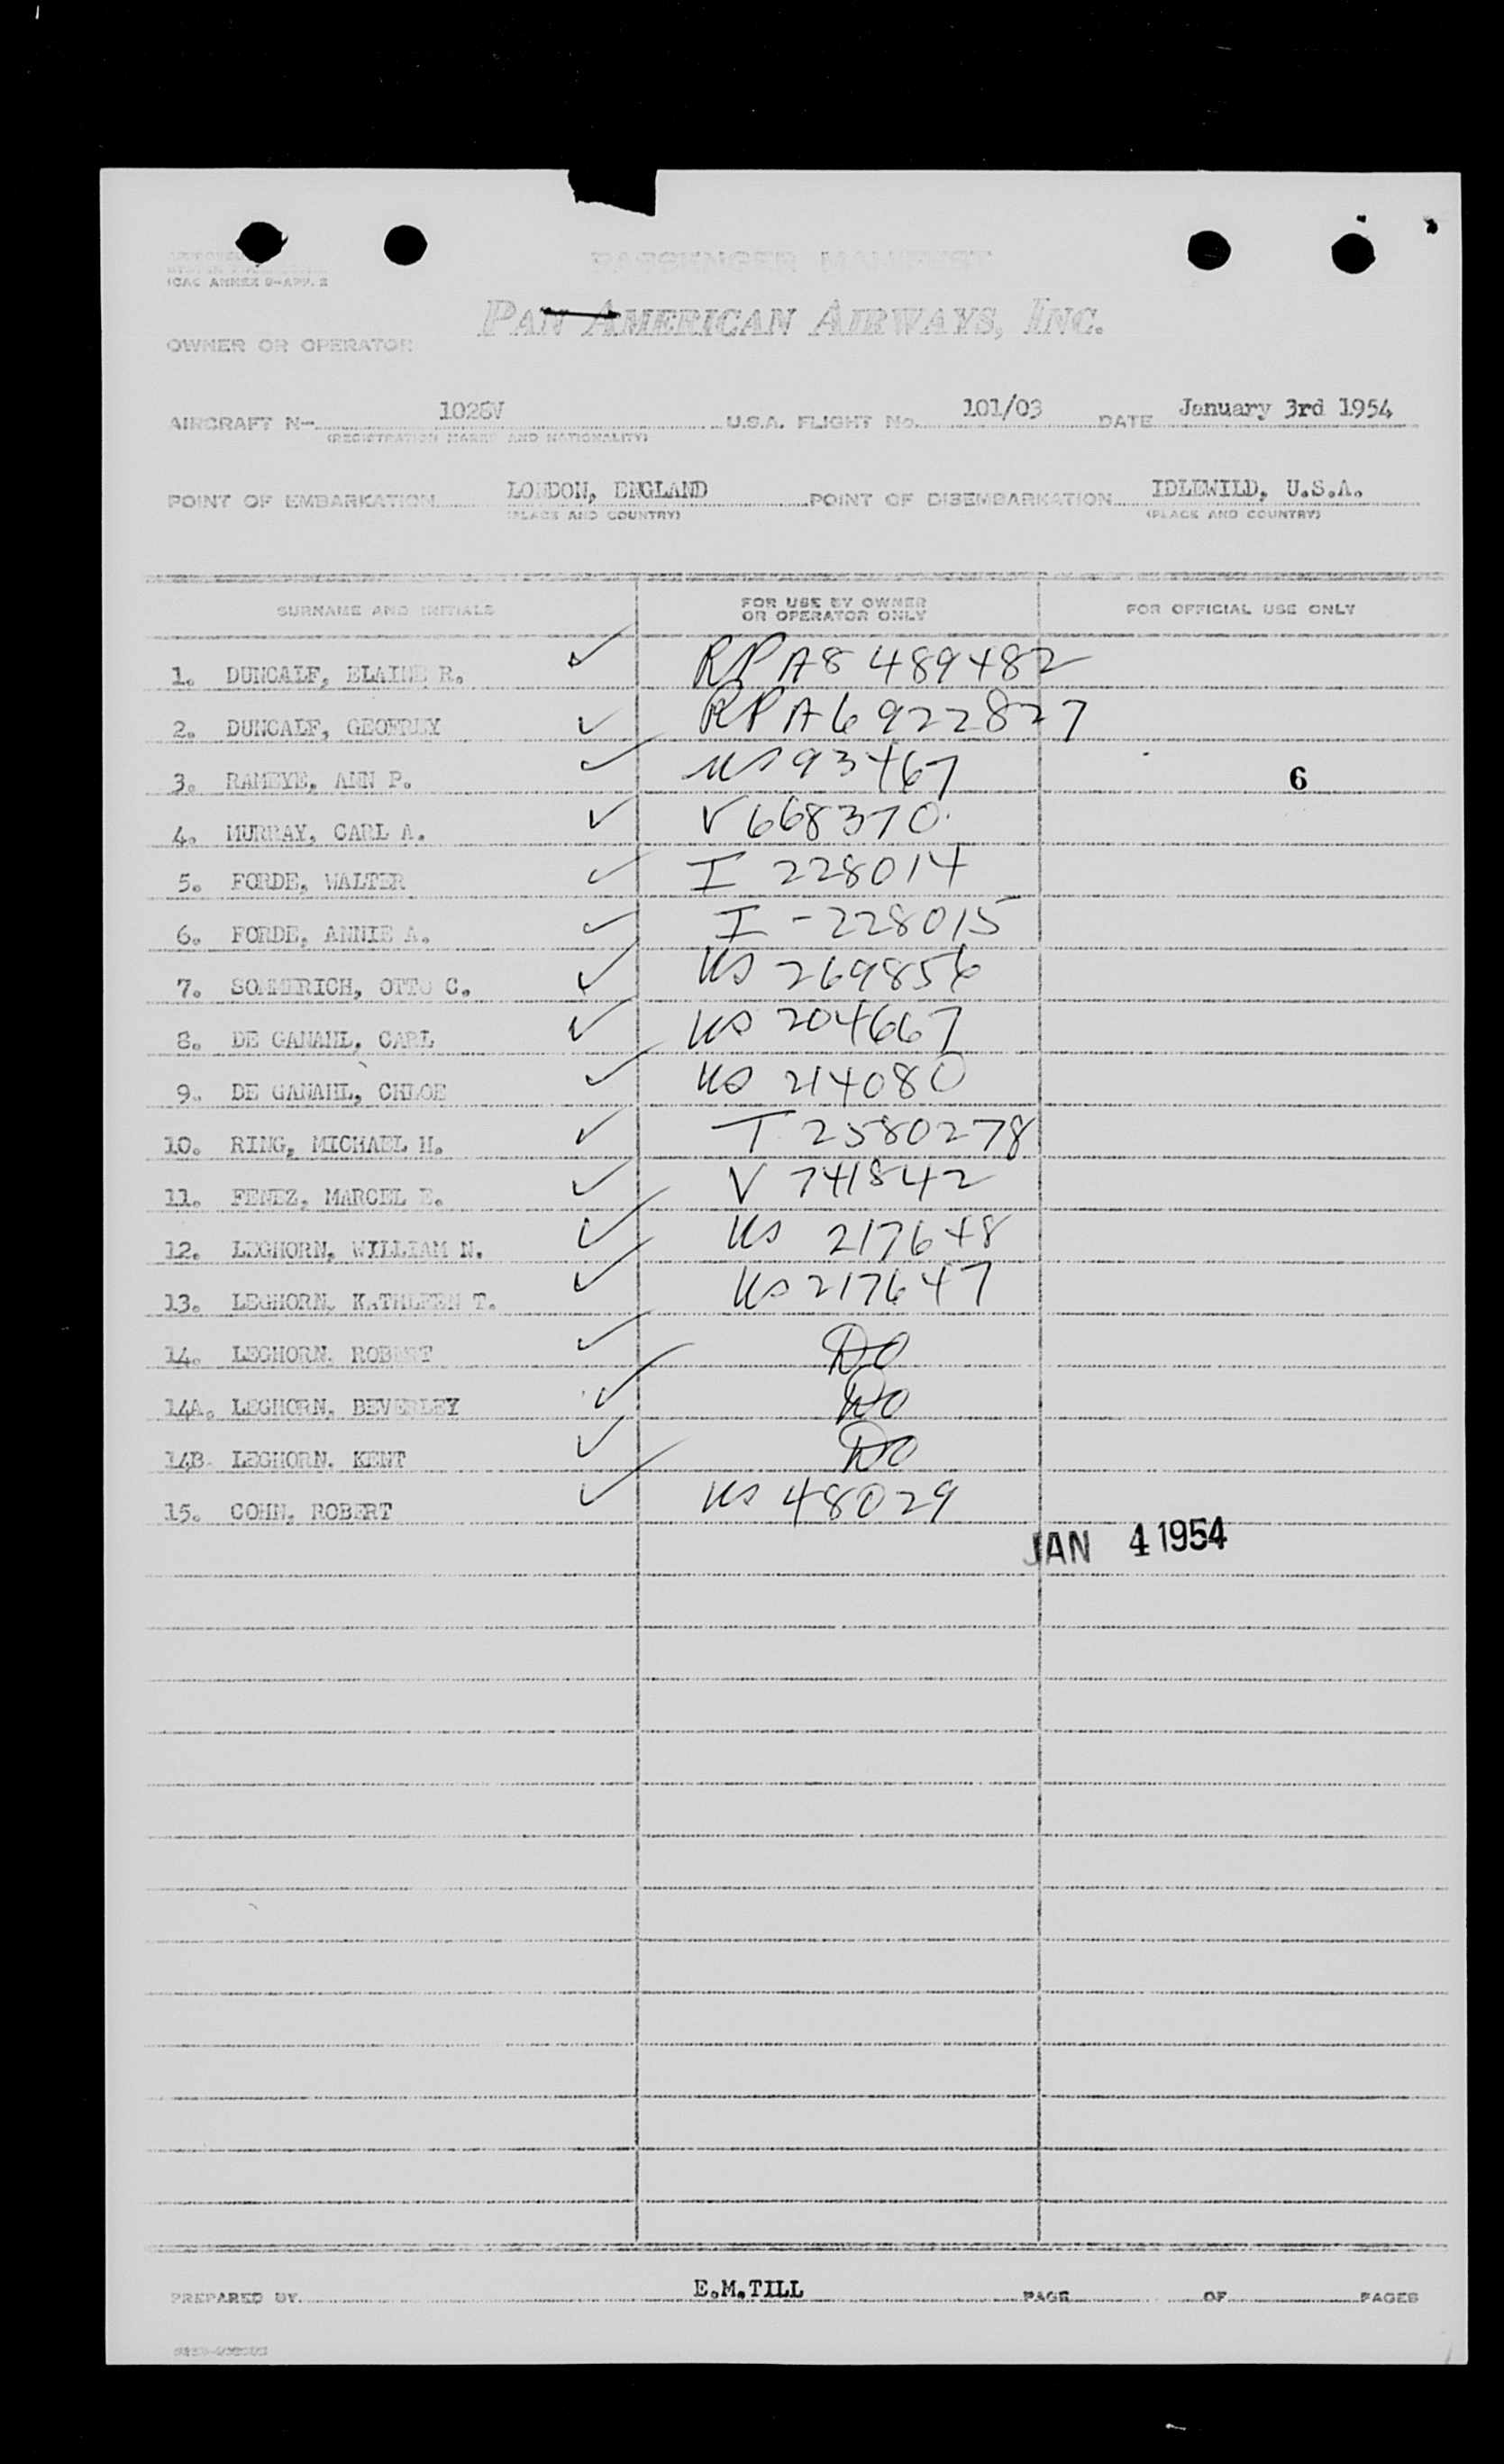 ICAO ANNEX 9-APP. 2
PASSENGER MANIFEST
PAN AMERICAN AIRWAYS, INC.
OWNER OR OPERATOR
AIRCRAFT N- 1028V U.S.A. FLIGHT No. 101/03 DATE January 3rd 1954
(REGISTRATION MARKS AND NATIONALITY)
POINT OF EMBARKATION LONDON, ENGLAND POINT OF DISEMBARKATION IDLEWILD, U.S.A.
(PLACE AND COUNTRY) (PLACE AND COUNTRY)
SURNAME AND INITIALS FOR USE BY OWNER OR OPERATOR ONLY FOR OFFICIAL USE ONLY
1. DUNCALF, ELAINE R. ✓ RPA8 489482
2. DUNCALF, GEOFREY ✓ RPA6922827
3. RAMEYE, ANN P. ✓ US93467 6
4. MURRAY, CARL A. ✓ V668370
5. FORDE, WALTER ✓ I 228014
6. FORDE, ANNIE A. ✓ I-228015
7. SOMMERICH, OTTO C. ✓ US 269856
8. DE GANAHL, CARL ✓ US 204667
9. DE GANAHL, CHLOE ✓ US 214080
10. RING, MICHAEL H. ✓ T 2580278
11. FENEZ, MARCEL E. ✓ V 741842
12. LEGHORN, WILLIAM N. ✓ US 217648
13. LEGHORN. KATHLEEN T. ✓ US217647
14. LEGHORN. ROBERT ✓ DO
14A. LEGHORN, BEVERLEY ✓ DO
14B. LEGHORN. KENT ✓ DO
15. COHN. ROBERT ✓ US 48029
JAN 4 1954
PREPARED BY E.M.TILL PAGE OF PAGES